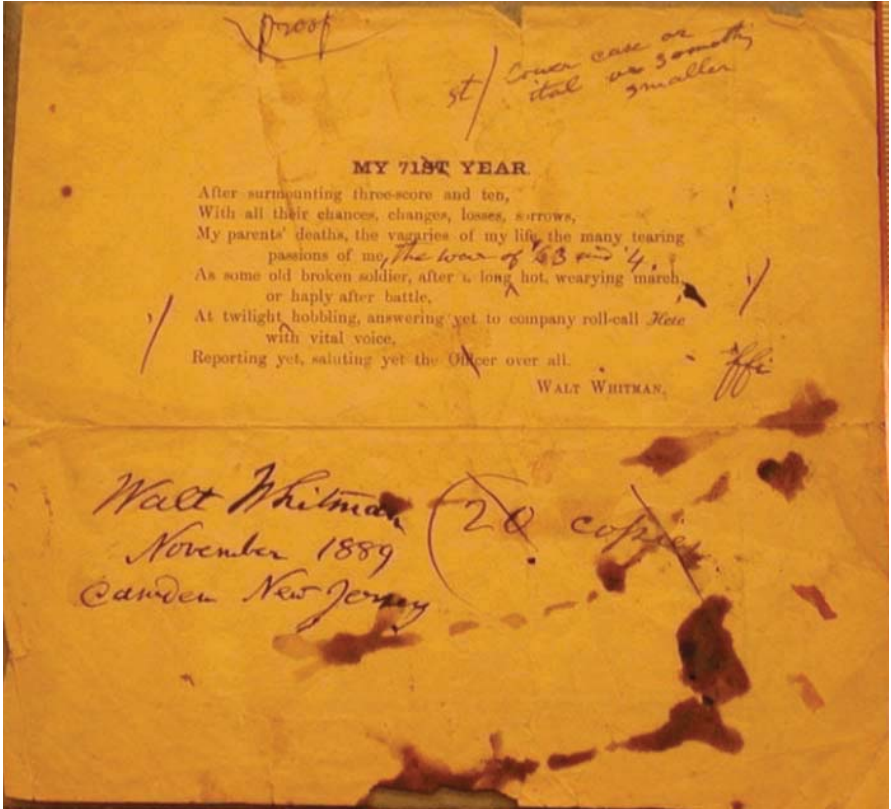 proof
st/ Lower case or
ital or someth'g
smaller
MY 71ST YEAR.
After surmounting three-score and ten,
With all their chances, changes, losses, sorrows,
My parents' deaths, the vagaries of my life, the many tearing
passions of me, the war of '63 and '4,
As some old broken soldier, after a long hot, wearying march,
or haply after battle,
At twilight hobbling, answering yet to company roll-call Here
with vital voice,
Reporting yet, saluting yet the Officer over all.
ffi
WALT WHITMAN.
Walt Whitman
November 1889
Camden New Jersey
(20 copies